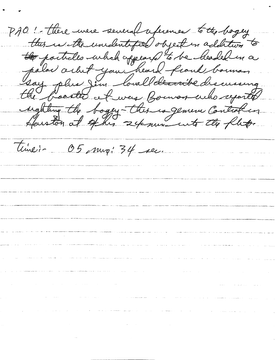 PAO:- there were several references to the bogey
this is the unidentified object in addition to
the particles which appeared to be headed in a
polar orbit you heard frank borman
say plus Jim lovell describe discussing
the booster it was Borman who reported
sighting the bogey - this is gemini Control in
Houston at 4 hrs 24 min into the flight.
time:- 05 min: 34 sec.